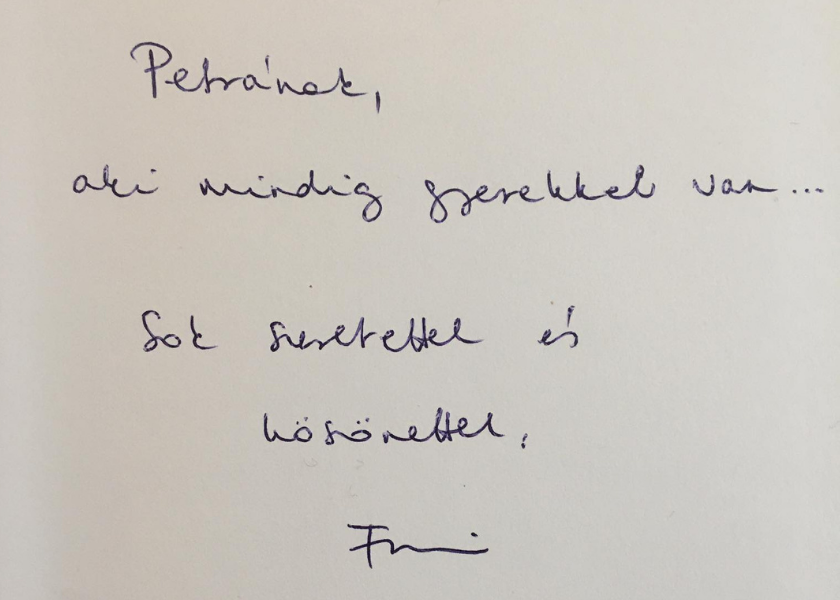 Petrának,
aki mindig gyerekkel van...
Sok szeretettel és
köszönettel,